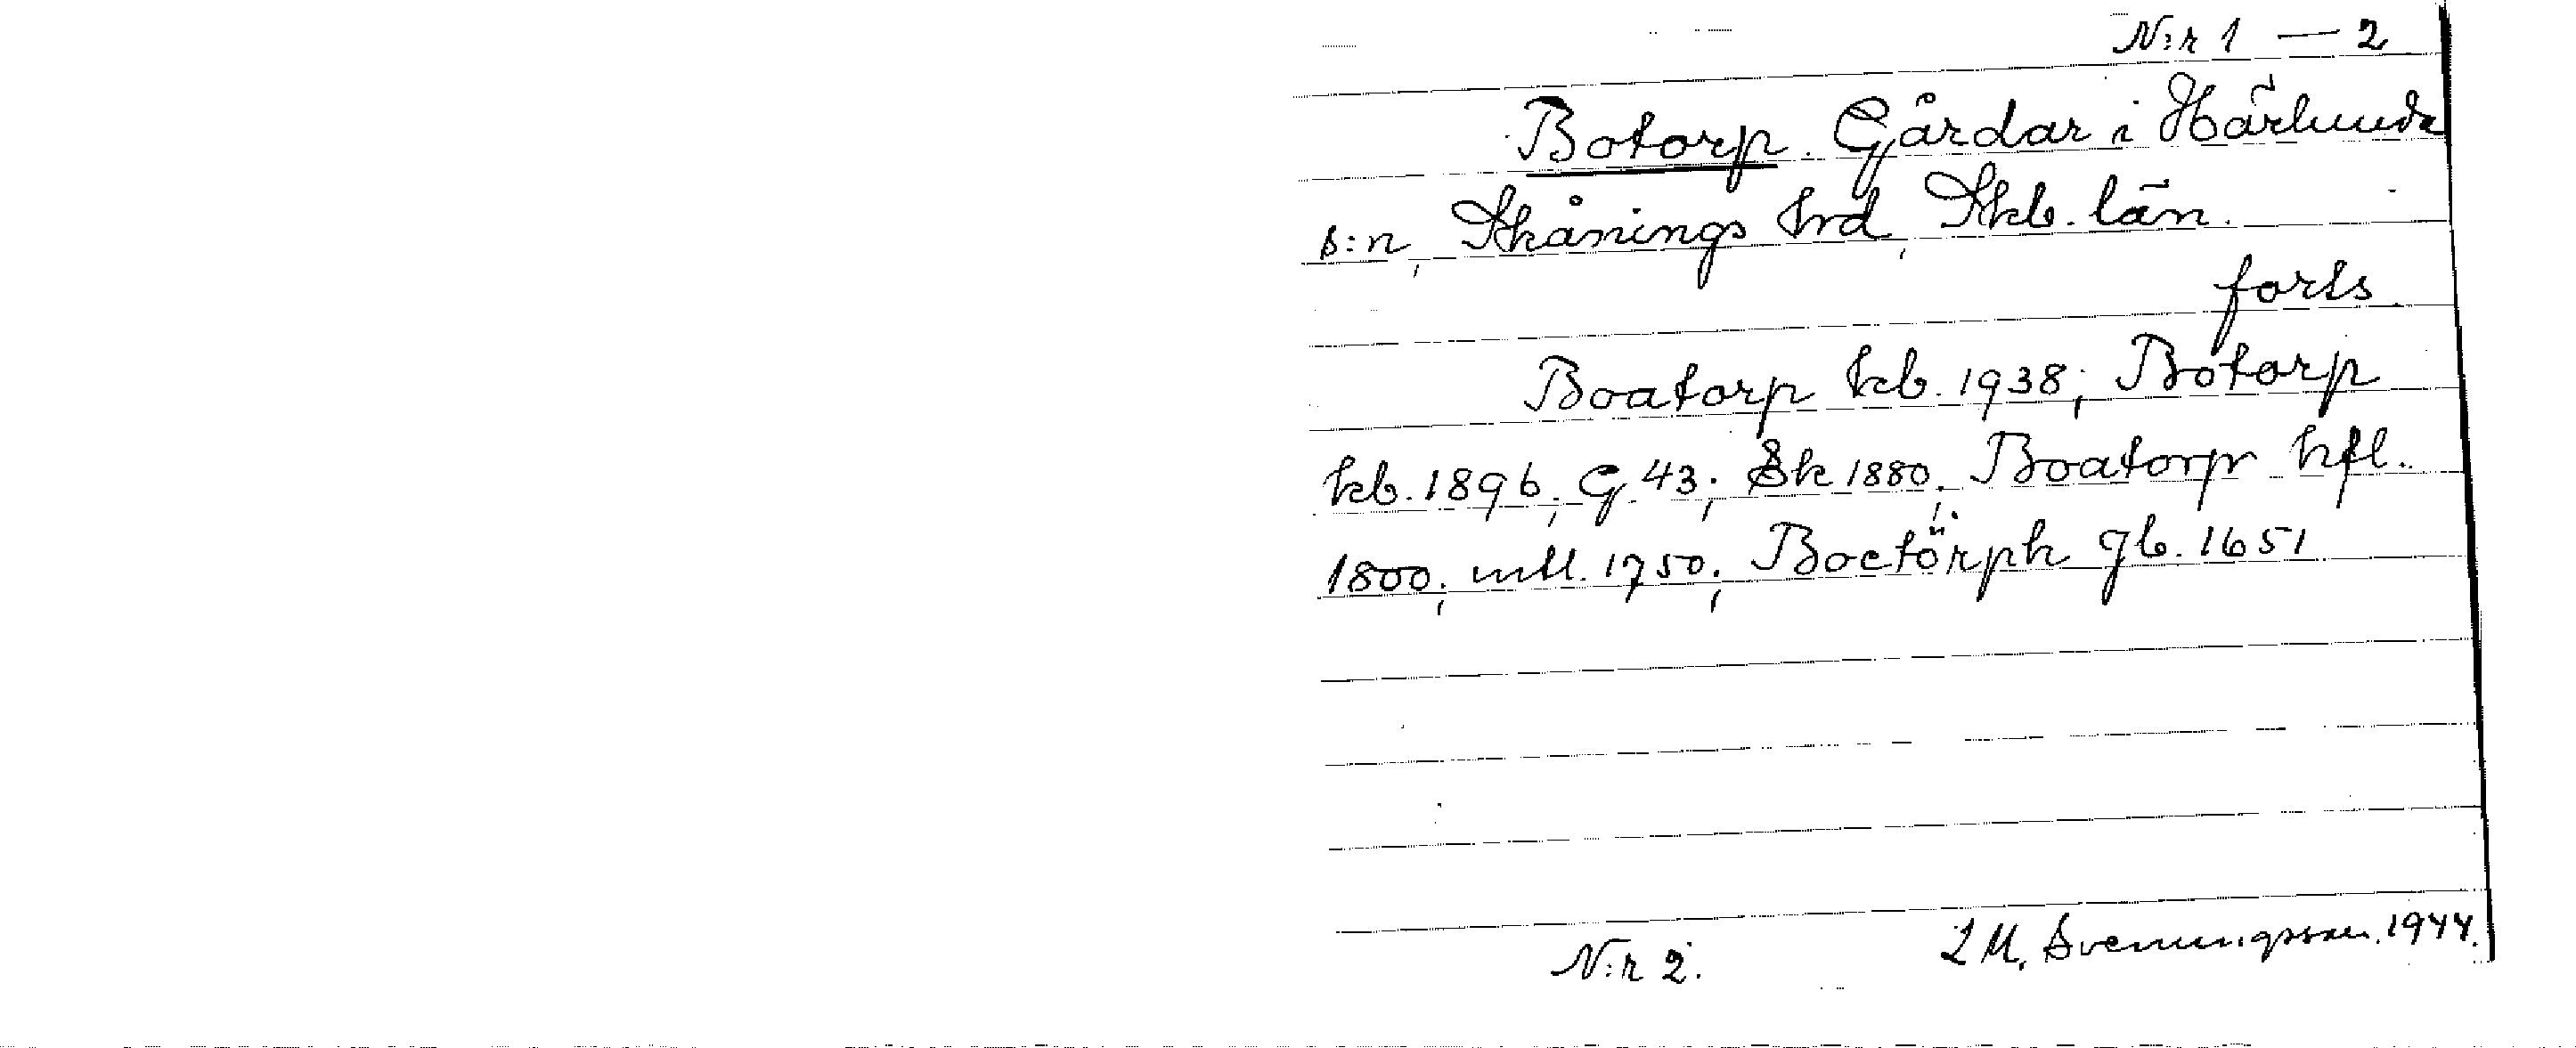 N:r 1 — 2
Botorp. Gårdar i Härlunda
s:n, Skånings hrd, Skb. län.
forts.
Boatorp kb. 1938; Botorp
kb. 1896; G. 43; Sk 1880; Boatorp hfl.
1800; mtl. 1750; Boctörph jb. 1651
N:r 2. L M. Svenungsson. 1944.